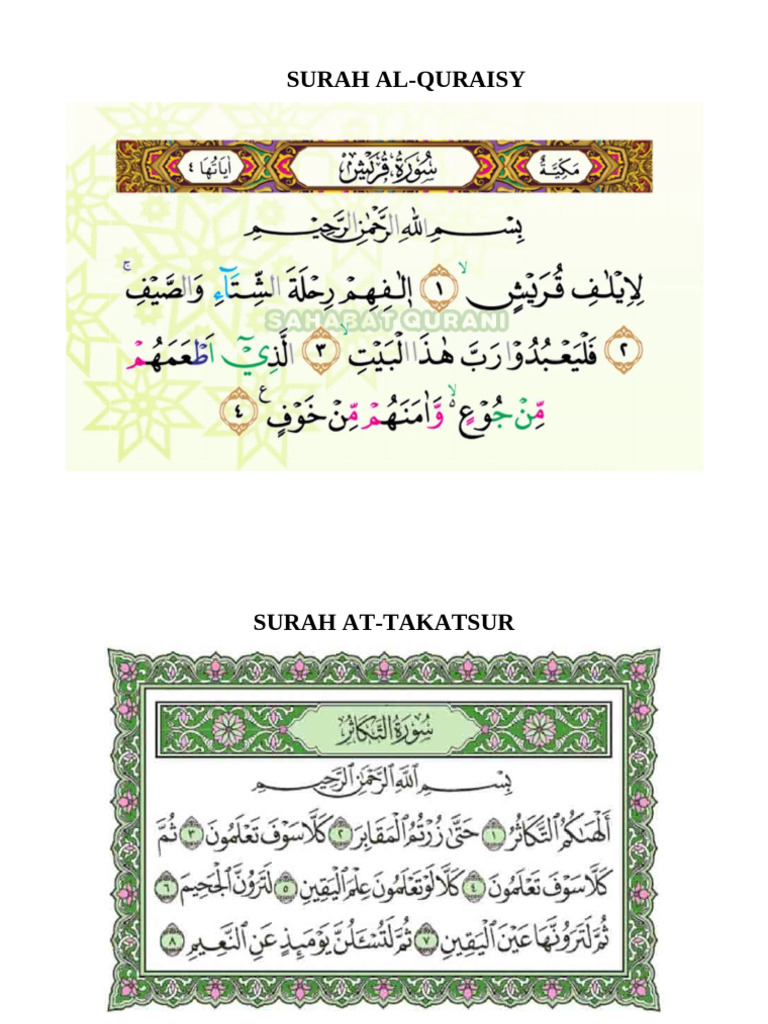 SURAH AL-QURAISY
مَكِّيَّةٌ سُوْرَةُ قُرَيْشٍ اٰيَاتُهَا ٤
بِسْمِ اللّٰهِ الرَّحْمٰنِ الرَّحِيْمِ
لِاِيْلٰفِ قُرَيْشٍۙ ١ اٖلٰفِهِمْ رِحْلَةَ الشِّتَاۤءِ وَالصَّيْفِۚ
SAHABAT QURANI
٢ فَلْيَعْبُدُوْا رَبَّ هٰذَا الْبَيْتِۙ ٣ الَّذِيْٓ اَطْعَمَهُمْ
مِّنْ جُوْعٍ ەۙ وَّاٰمَنَهُمْ مِّنْ خَوْفٍ ࣖ ٤
SURAH AT-TAKATSUR
سُورَةُ التَّكَاثُرِ
بِسْمِ ٱللَّهِ ٱلرَّحْمَٰنِ ٱلرَّحِيمِ
أَلْهَىٰكُمُ ٱلتَّكَاثُرُ ١ حَتَّىٰ زُرْتُمُ ٱلْمَقَابِرَ ٢ كَلَّا سَوْفَ تَعْلَمُونَ ٣ ثُمَّ
كَلَّا سَوْفَ تَعْلَمُونَ ٤ كَلَّا لَوْ تَعْلَمُونَ عِلْمَ ٱلْيَقِينِ ٥ لَتَرَوُنَّ ٱلْجَحِيمَ ٦
ثُمَّ لَتَرَوُنَّهَا عَيْنَ ٱلْيَقِينِ ٧ ثُمَّ لَتُسْـَٔلُنَّ يَوْمَئِذٍ عَنِ ٱلنَّعِيمِ ٨